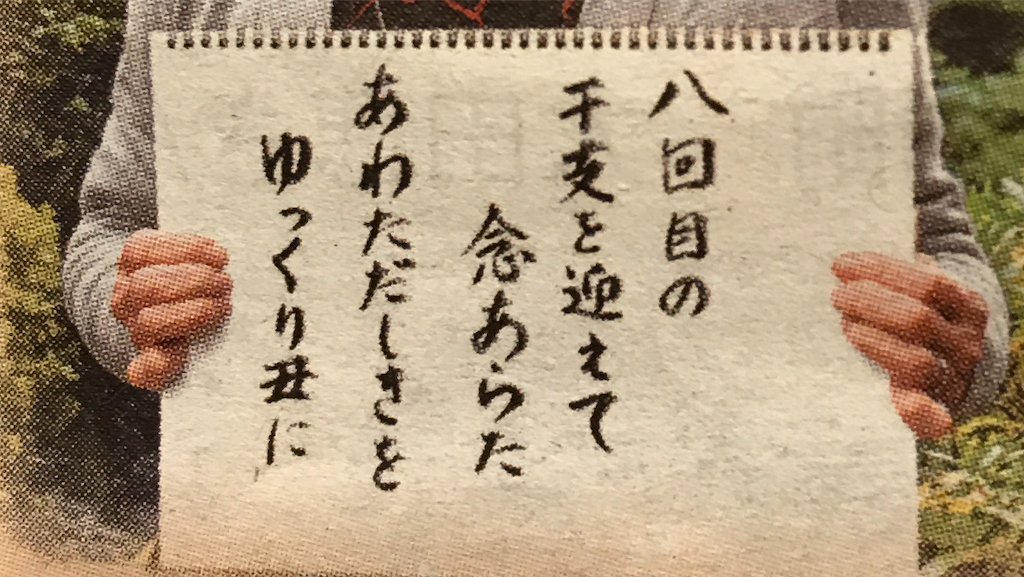 八回目の
干支を迎えて
念あらた
あわただしさを
ゆっくり丑に